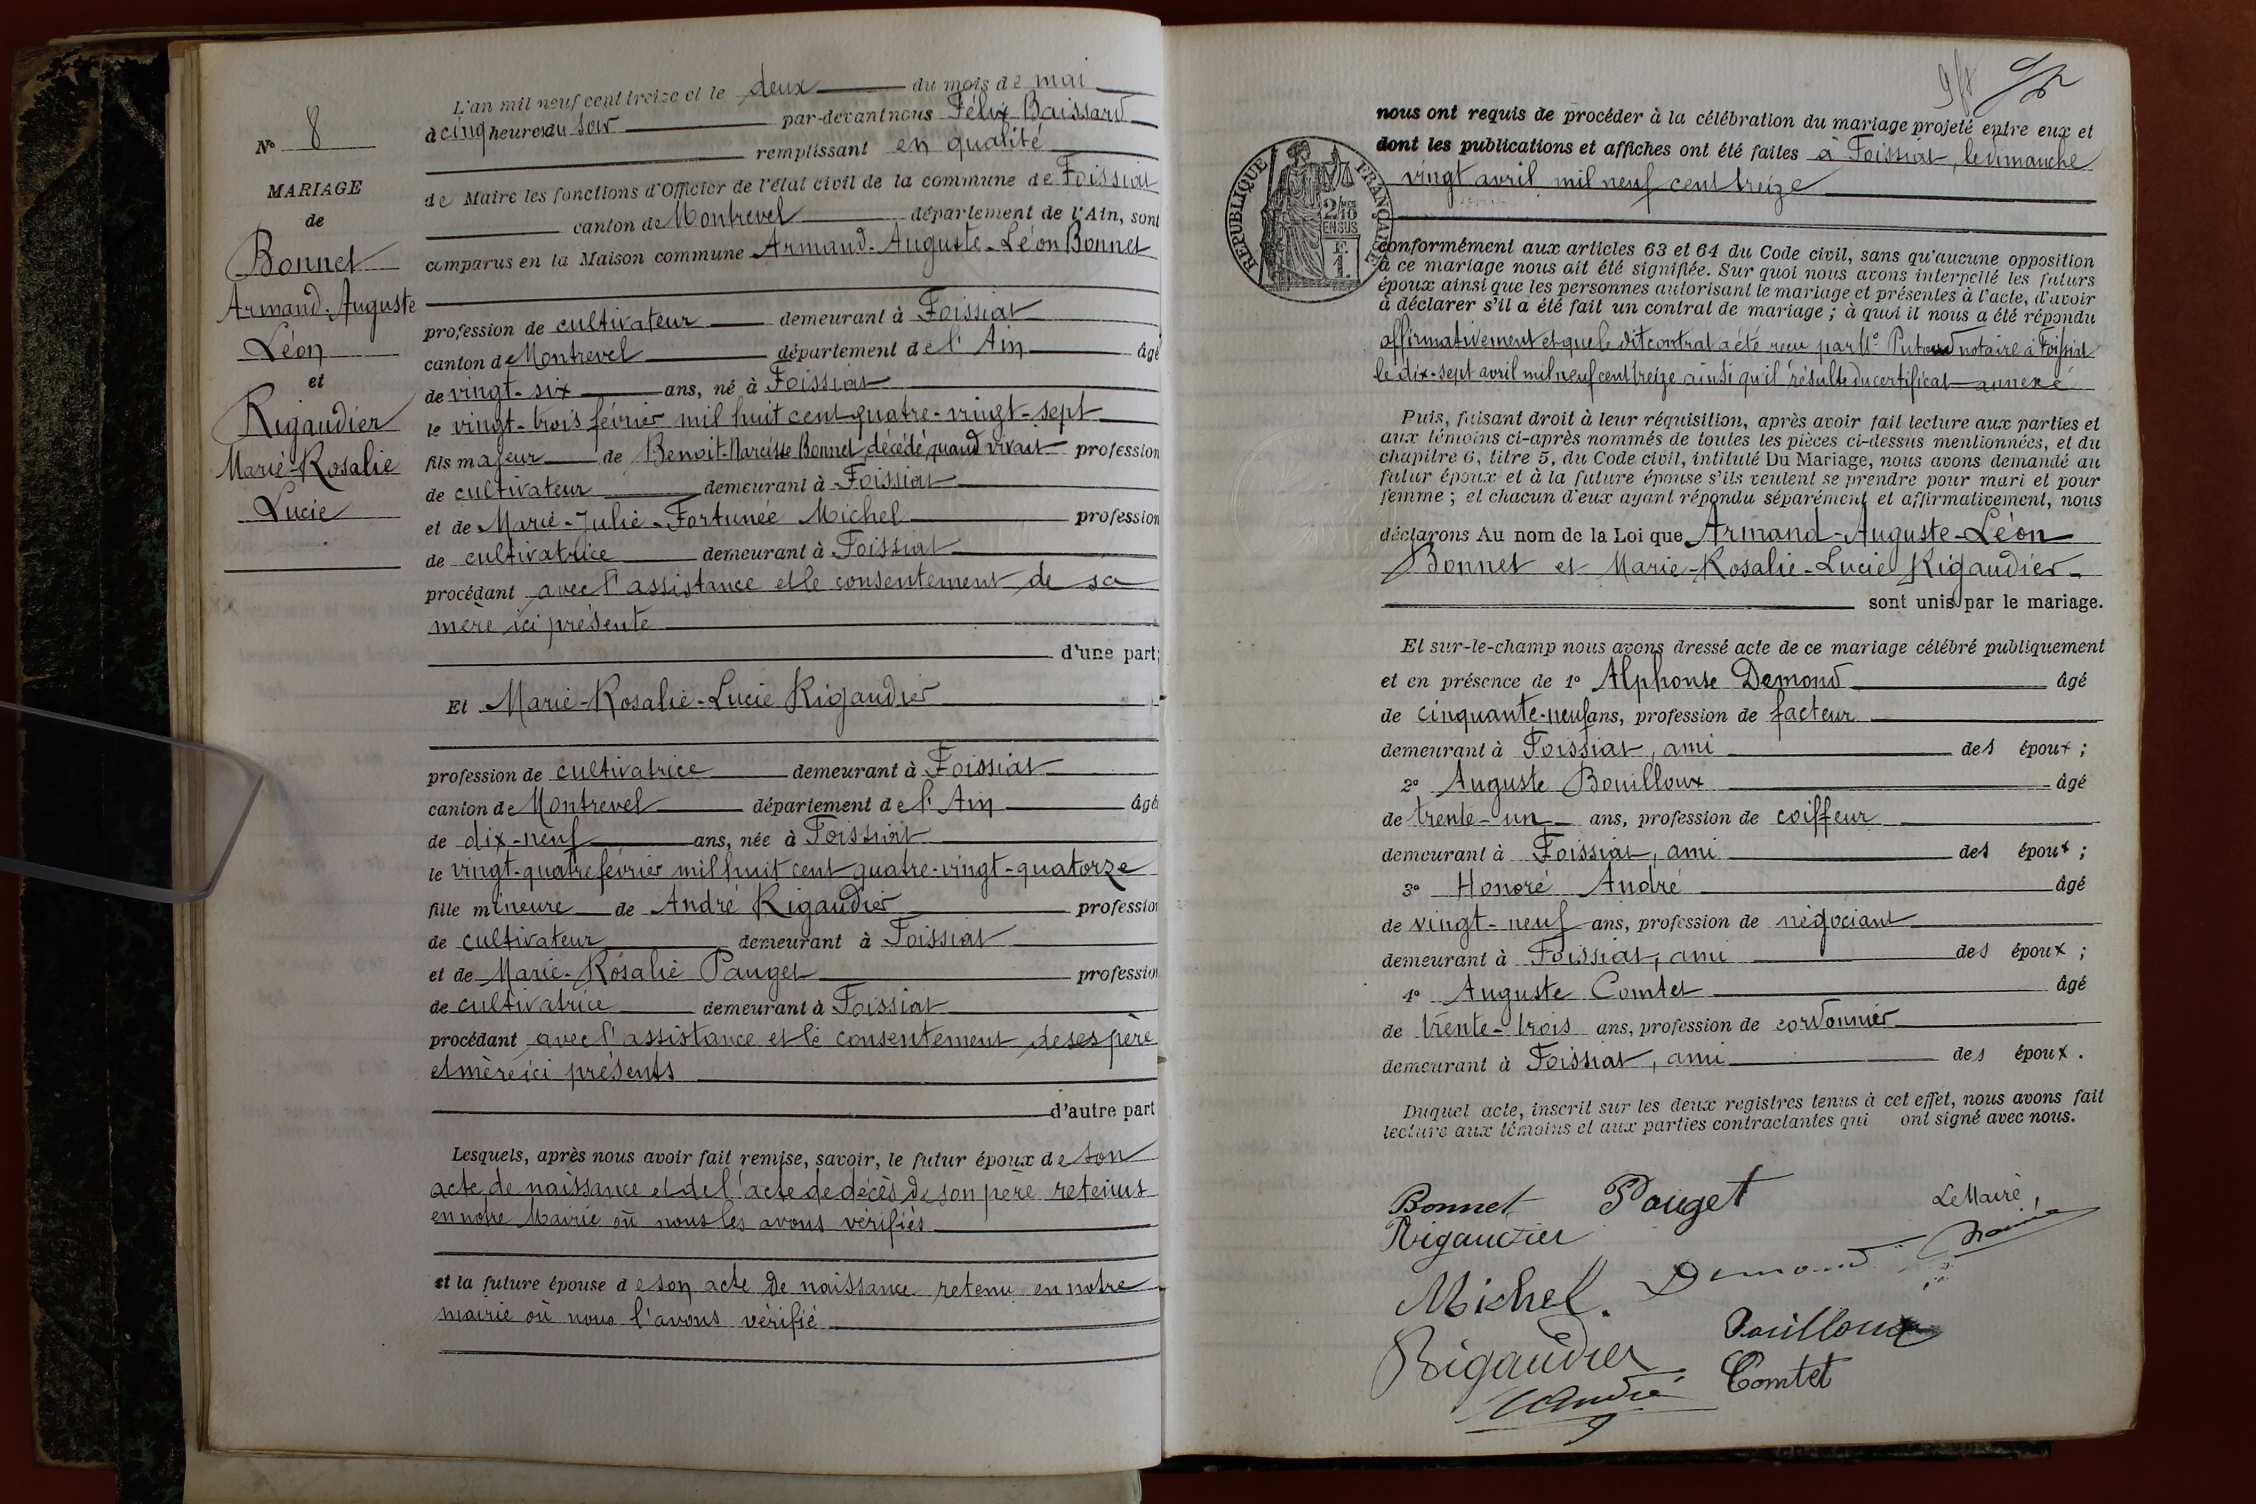 N° 8
MARIAGE
de
Bonnet
Armand-Auguste
Léon
et
Rigaudier
Marie-Rosalie
Lucie
L'an mil neuf cent treize et le deux du mois de mai
à cinq heures du soir par-devant nous Félix Baissard
remplissant en qualité
de Maire les fonctions d'Officier de l'état civil de la commune de Foissiat
canton de Montrevel département de l'Ain, sont
comparus en la Maison commune Armand-Auguste-Léon Bonnet
profession de cultivateur demeurant à Foissiat
canton de Montrevel département de l'Ain âgé
de vingt-six ans, né à Foissiat
le vingt-trois février mil huit cent quatre-vingt-sept
fils majeur de Benoit-Narcisse Bonnet, décédé, quand vivait profession
de cultivateur demeurant à Foissiat
et de Marie-Julie-Fortunée Michel profession
de cultivatrice demeurant à Foissiat
procédant avec l'assistance et le consentement de sa
mère ici présente
d'une part;
Et Marie-Rosalie-Lucie Rigaudier
profession de cultivatrice demeurant à Foissiat
canton de Montrevel département de l'Ain âgé
de dix-neuf ans, née à Foissiat
le vingt-quatre février mil huit cent quatre-vingt-quatorze
fille mineure de André Rigaudier profession
de cultivateur demeurant à Foissiat
et de Marie-Rosalie Pauget profession
de cultivatrice demeurant à Foissiat
procédant avec l'assistance et le consentement de ses père
et mère ici présents
d'autre part
Lesquels, après nous avoir fait remise, savoir, le futur époux de son
acte de naissance et de l'acte de décès de son père retenus
en notre Mairie où nous les avons vérifiés
et la future épouse de son acte de naissance retenu en notre
mairie où nous l'avons vérifié
RÉPUBLIQUE FRANÇAISE
2/10
EN SUS
F.
1.
nous ont requis de procéder à la célébration du mariage projeté entre eux et
dont les publications et affiches ont été faites à Foissiat, le dimanche
vingt avril mil neuf cent treize
conformément aux articles 63 et 64 du Code civil, sans qu'aucune opposition
à ce mariage nous ait été signifiée. Sur quoi nous avons interpellé les futurs
époux ainsi que les personnes autorisant le mariage et présentes à l'acte, d'avoir
à déclarer s'il a été fait un contrat de mariage ; à quoi il nous a été répondu
affirmativement et que le dit contrat a été reçu par Me notaire à Foissiat
le dix-sept avril mil neuf cent treize ainsi qu'il résulte du certificat annexé
Puis, faisant droit à leur réquisition, après avoir fait lecture aux parties et
aux témoins ci-après nommés de toutes les pièces ci-dessus mentionnées, et du
chapitre 6, titre 5, du Code civil, intitulé Du Mariage, nous avons demandé au
futur époux et à la future épouse s'ils veulent se prendre pour mari et pour
femme ; et chacun d'eux ayant répondu séparément et affirmativement, nous
déclarons Au nom de la Loi que Armand-Auguste-Léon
Bonnet et Marie-Rosalie-Lucie Rigaudier
sont unis par le mariage.
Et sur-le-champ nous avons dressé acte de ce mariage célébré publiquement
et en présence de 1° Alphonse Demond âgé
de cinquante-neuf ans, profession de facteur
demeurant à Foissiat, ami des époux ;
2° Auguste Bouilloux âgé
de trente-un ans, profession de coiffeur
demeurant à Foissiat, ami des époux ;
3° Honoré André âgé
de vingt-neuf ans, profession de négociant
demeurant à Foissiat, ami des époux ;
4° Auguste Comtet âgé
de trente-trois ans, profession de cordonnier
demeurant à Foissiat, ami des époux.
Duquel acte, inscrit sur les deux registres tenus à cet effet, nous avons fait
lecture aux témoins et aux parties contractantes qui ont signé avec nous.
Bonnet Pauget Le Maire,
Rigaudier
Michel. Demond
Bouilloux
Rigaudier
Comtet
André